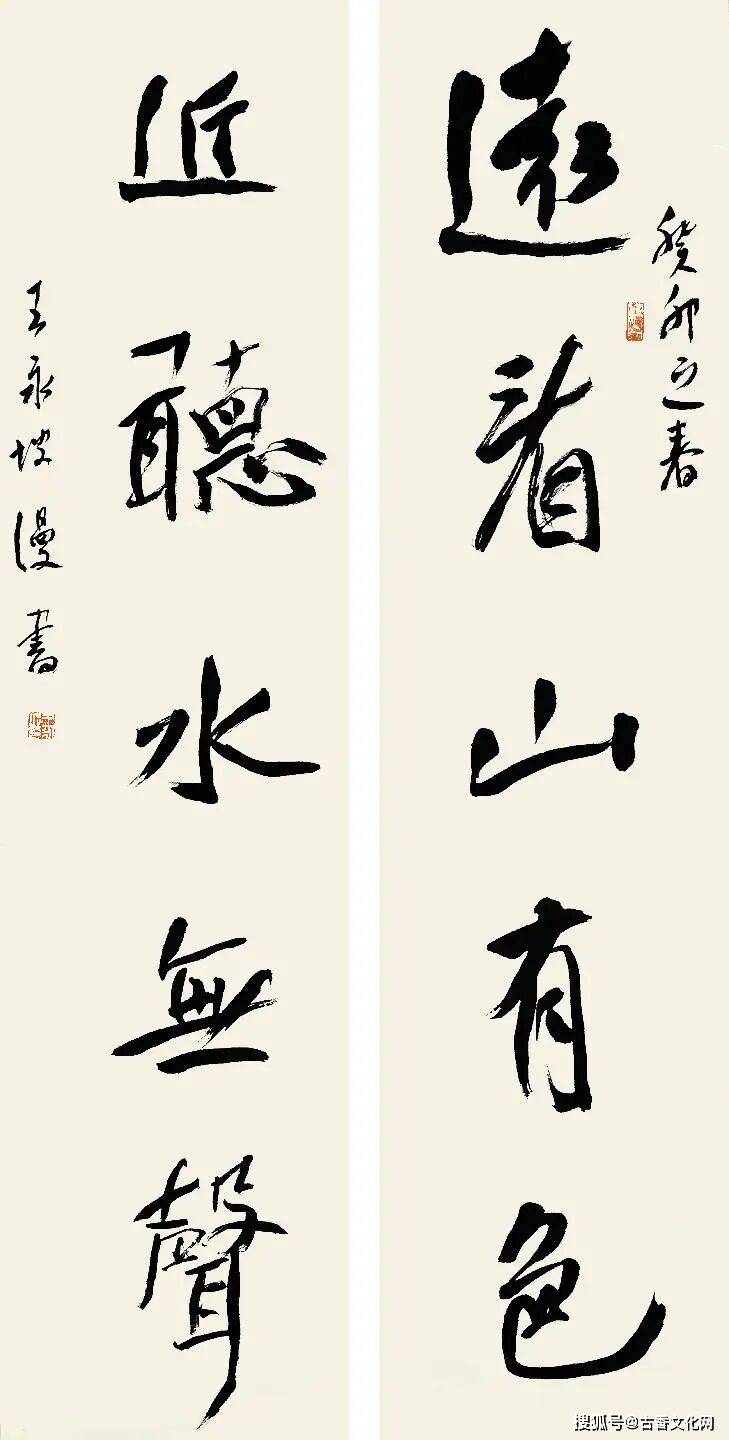 遠看山有色
癸卯之春
近聽水無聲
王永坡漫書
搜狐号@古香文化网